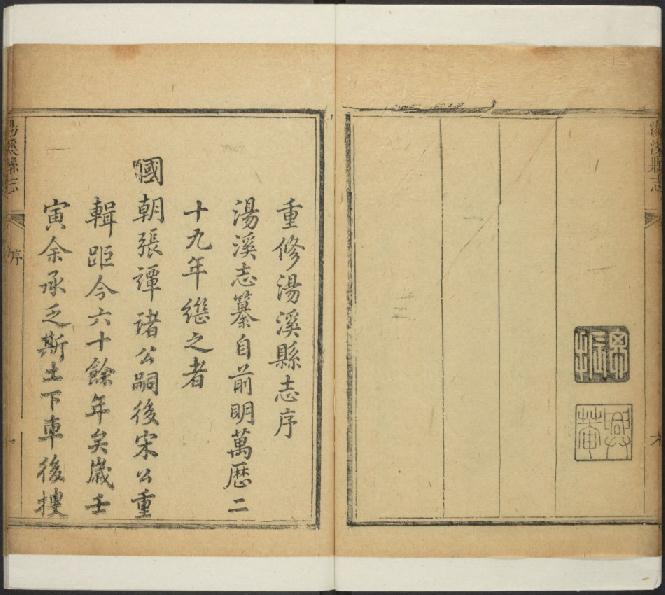 湯溪縣志
重修湯溪縣志序
湯溪志纂自前明萬歷二
十九年繼之者
國朝張譚諸公嗣後宋公重
輯距今六十餘年矣歲壬
寅余承乏斯土下車後搜
湯溪縣志
序
一